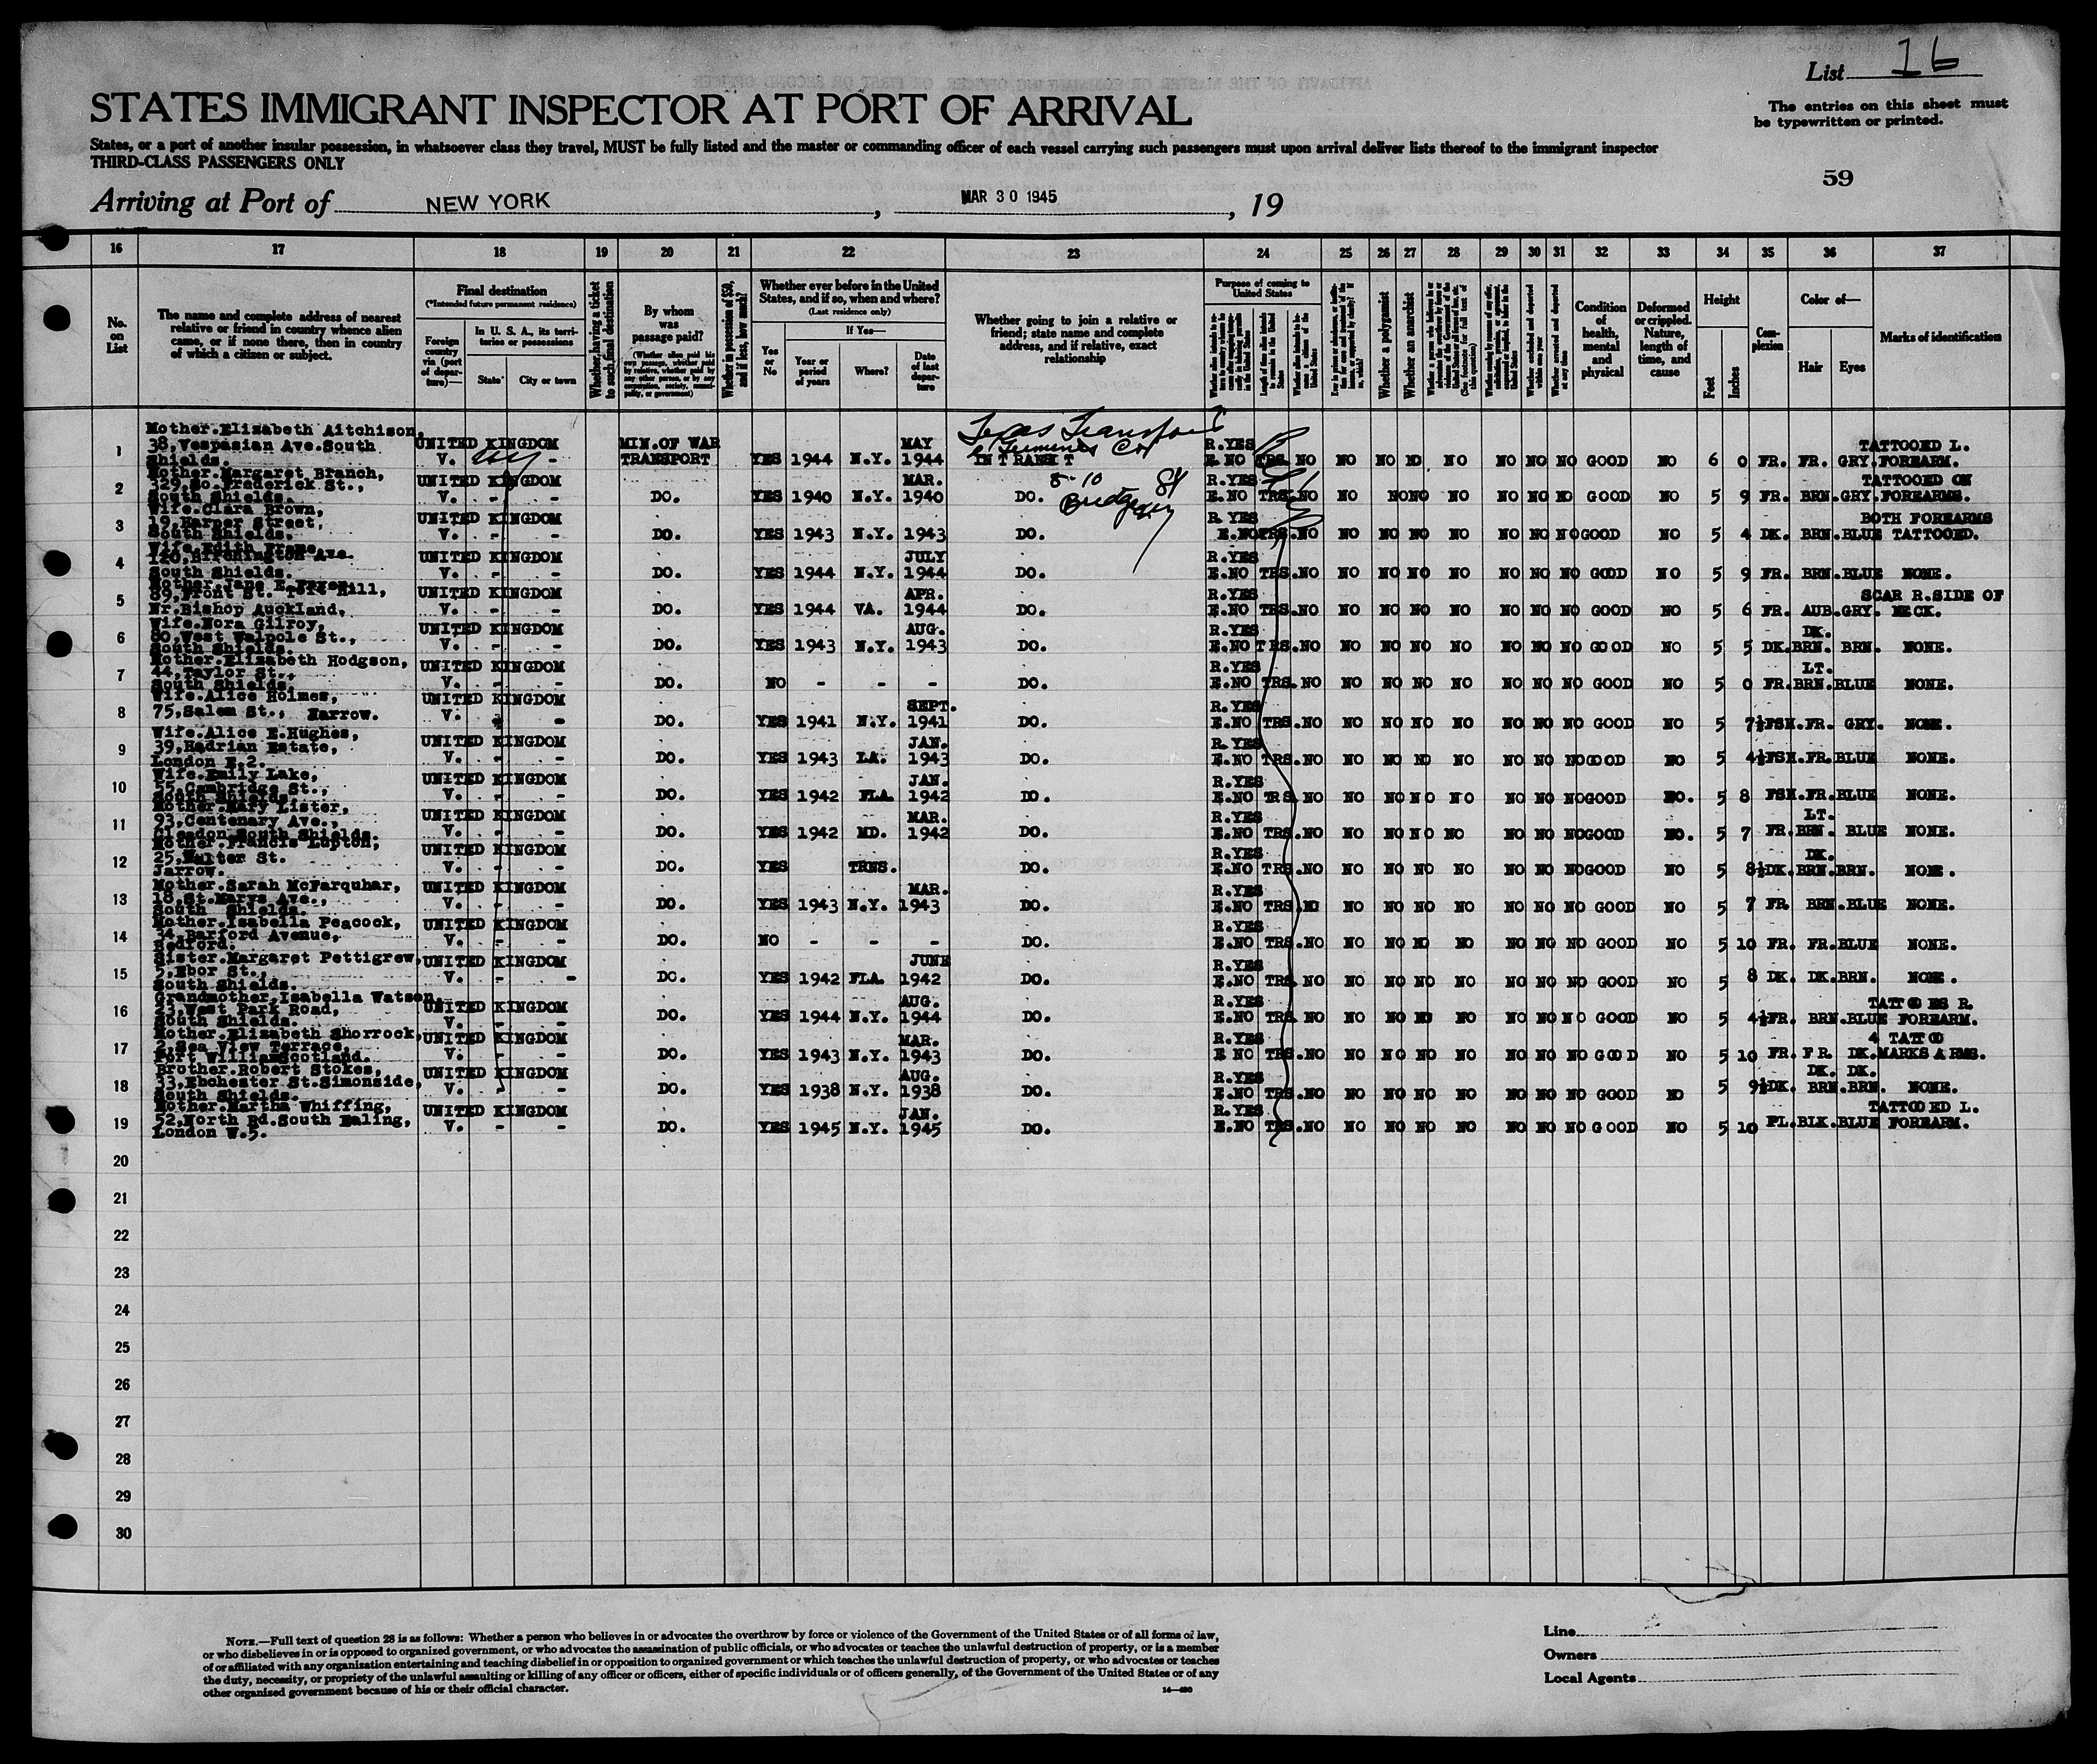 List 16
STATES IMMIGRANT INSPECTOR AT PORT OF ARRIVAL
The entries on this sheet must
be typewritten or printed.
States, or a port of another insular possession, in whatsoever class they travel, MUST be fully listed and the master or commanding officer of each vessel carrying such passengers must upon arrival deliver lists thereof to the immigrant inspector
THIRD-CLASS PASSENGERS ONLY
59
Arriving at Port of NEW YORK, MAR 30 1945, 19
16 17 18 19 20 21 22 23 24 25 26 27 28 29 30 31 32 33 34 35 36 37
No. on List
The name and complete address of nearest relative or friend in country whence alien came, or if none there, then in country of which a citizen or subject.
Final destination
(*Intended future permanent residence)
Foreign country via (port of departure)—
In U. S. A., its territories or possessions
State
City or town
Whether having a ticket to such final destination
By whom was passage paid?
(Whether alien paid his own passage, whether paid by relative, whether paid by any other person, or by any corporation, society, municipality, or government)
Whether in possession of $50, and if less, how much?
Whether ever before in the United States, and if so, when and where?
(Last residence only)
Yes or No
If Yes—
Year or period of years
Where?
Date of last departure
Whether going to join a relative or friend; state name and complete address, and if relative, exact relationship
Purpose of coming to United States
Whether a polygamist
Whether an anarchist
(See footnote for full text of this question)
Whether arrested and deported at any time
Condition of health, mental and physical
Deformed or crippled. Nature, length of time, and cause
Height
Feet
Inches
Complexion
Color of—
Hair
Eyes
Marks of identification
1 Mother.Elizabeth Aitchison, 38,Vespasian Ave.South Shields. UNITED KINGDOM V. - MIN.OF WAR TRANSPORT YES 1944 N.Y. MAY 1944 Texas Transport & Terminal Co IN TRANSIT R.YES E.NO TRS. NO NO NO NO NO NO NO NO GOOD NO 6 0 FR. FR. GRY. TATTOOED L. FOREARM.
2 Mother.Margaret Branch, 329,So.Frederick St., South Shields. UNITED KINGDOM V. - - DO. YES 1940 N.Y. MAR. 1940 DO. 8-10 Bridge R.YES E.NO TRS. NO NO NO NO NO NO NO NO GOOD NO 5 9 FR. BRN. GRY. TATTOOED ON FOREARMS.
3 Wife.Clara Brown, 19,Harper Street, South Shields. UNITED KINGDOM V. - - DO. YES 1943 N.Y. 1943 DO. R.YES E.NO TRS. NO NO NO NO NO NO NO NO GOOD NO 5 4 DK. BRN. BLUE BOTH FOREARMS TATTOOED.
4 Wife.Edith 120, Ave. South Shields. UNITED KINGDOM V. - - DO. YES 1944 N.Y. JULY 1944 DO. R.YES E.NO TRS. NO NO NO NO NO NO NO NO GOOD NO 5 9 FR. BRN. BLUE NONE.
5 Mother.Jane E. 89,Front St. Hill, Nr.Bishop Auckland, UNITED KINGDOM V. - - DO. YES 1944 VA. APR. 1944 DO. R.YES E.NO TRS. NO NO NO NO NO NO NO NO GOOD NO 5 6 FR. AUB. GRY. SCAR R.SIDE OF NECK.
6 Wife.Nora Gilroy, 80,West Walpole St., South Shields. UNITED KINGDOM V. - - DO. YES 1943 N.Y. AUG. 1943 DO. R.YES E.NO TRS. NO NO NO NO NO NO NO NO GOOD NO 5 5 DK. DK. BRN. BRN. NONE.
7 Mother.Elizabeth Hodgson, 44,Taylor St., South Shields. UNITED KINGDOM V. - - DO. NO - - - DO. R.YES E.NO TRS. NO NO NO NO NO NO NO NO GOOD NO 5 0 FR. LT. BRN. BLUE NONE.
8 Wife.Alice Holmes, 75,Salem St., Jarrow. UNITED KINGDOM V. - - DO. YES 1941 N.Y. SEPT. 1941 DO. R.YES E.NO TRS. NO NO NO NO NO NO NO NO GOOD NO 5 7½ FSH. FR. GRY. NONE.
9 Wife.Alice E.Hughes, 39,Hadrian Estate, London E.2. UNITED KINGDOM V. - - DO. YES 1943 LA. JAN. 1943 DO. R.YES E.NO TRS. NO NO NO NO NO NO NO NO GOOD NO 5 4½ FSH. FR. BLUE NONE.
10 Wife.Emily Lake, 55,Cambridge St., South Shields. UNITED KINGDOM V. - - DO. YES 1942 FLA. JAN. 1942 DO. R.YES E.NO TRS. NO NO NO NO NO NO NO NO GOOD NO. 5 8 FSH. FR. BLUE NONE.
11 Mother.Mary Lister, 93,Centenary Ave., Cleadon,South Shields. UNITED KINGDOM V. - - DO. YES 1942 MD. MAR. 1942 DO. R.YES E.NO TRS. NO NO NO NO NO NO NO NO GOOD NO. 5 7 FR. LT. BRN. BLUE NONE.
12 Mother.Francis Lupton, 25,Walter St. Jarrow. UNITED KINGDOM V. - - DO. YES TRNS. DO. R.YES E.NO TRS. NO NO NO NO NO NO NO NO GOOD NO 5 8½ DK. DK. BRN. BRN. NONE.
13 Mother.Sarah McFarquhar, 18,St.Marys Ave., South Shields. UNITED KINGDOM V. - - DO. YES 1943 N.Y. MAR. 1943 DO. R.YES E.NO TRS. NO NO NO NO NO NO NO NO GOOD NO 5 7 FR. BRN. BLUE NONE.
14 Mother.Isabella Peacock, 34,Barford Avenue, Bedford. UNITED KINGDOM V. - - DO. NO - - - DO. R.YES E.NO TRS. NO NO NO NO NO NO NO NO GOOD NO 5 10 FR. FR. BLUE NONE.
15 Sister.Margaret Pettigrew, 5,Ebor St., South Shields. UNITED KINGDOM V. - - DO. YES 1942 FLA. JUNE 1942 DO. R.YES E.NO TRS. NO NO NO NO NO NO NO NO GOOD NO 5 8 DK. DK. BRN. NONE.
16 Grandmother,Isabella Watson, 23,West Park Road, South Shields. UNITED KINGDOM V. - - DO. YES 1944 N.Y. AUG. 1944 DO. R.YES E.NO TRS. NO NO NO NO NO NO NO NO GOOD NO 5 4½ FR. BRN. BLUE TATTOOES R. FOREARM.
17 Mother.Elizabeth Shorrock, 2,Sea View Terrace, Fort William Scotland. UNITED KINGDOM V. - - DO. YES 1943 N.Y. MAR. 1943 DO. R.YES E NO TRS. NO NO NO NO NO NO NO NO GOOD NO 5 10 FR. FR. DK. 4 TATTOO MARKS ARMS.
18 Brother.Robert Stokes, 33,Ebchester St.Simonside, South Shields. UNITED KINGDOM V. - - DO. YES 1938 N.Y. AUG. 1938 DO. R.YES E.NO TRS. NO NO NO NO NO NO NO NO GOOD NO 5 9½ DK. DK. BRN. DK. BRN. NONE.
19 Mother.Martha Whiffing, 52,North Rd.South Ealing, London W.5. UNITED KINGDOM V. - - DO. YES 1945 N.Y. JAN. 1945 DO. R.YES E.NO TRS. NO NO NO NO NO NO NO NO GOOD NO 5 10 PL. BLK. BLUE TATTOOED L. FOREARM.
20
21
22
23
24
25
26
27
28
29
30
NOTE.—Full text of question 28 is as follows: Whether a person who believes in or advocates the overthrow by force or violence of the Government of the United States or of all forms of law,
or who disbelieves in or is opposed to organized government, or who advocates the assassination of public officials, or who advocates or teaches the unlawful destruction of property, or is a member
of or affiliated with any organization entertaining and teaching disbelief in or opposition to organized government or which teaches the unlawful destruction of property, or who advocates or teaches
the duty, necessity, or propriety of the unlawful assaulting or killing of any officer or officers, either of specific individuals or of officers generally, of the Government of the United States or of any
other organized government because of his or their official character.
Line
Owners
Local Agents